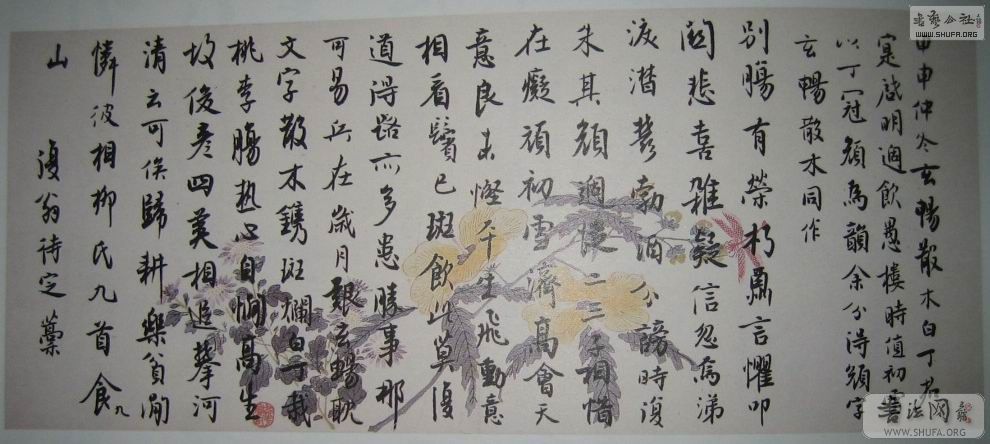 甲申仲冬玄暢散木白丁君
寔啟明過飲愚樓時值初雪
以丁冠頑為韻余分得頑字
玄暢散木同作
別腸有榮朽肅言懼叩
關悲喜雜疑信忽為涕
淚潸鬱勃洎分謗時復
朱其顏過從二三子相惜
在癡頑初雪濟高會天
意良未慳平生飛動意
相看鬢已斑飲此莫復
道得路亦多患勝事那
可易兵在歲月艱玄暢耽
文字散木鐫斑斕白丁栽
桃李腸熱心自憪高生
故俊彥四美相追攀河
清云可俟歸耕樂貧閒
憐彼相柳氏九首食九
山 復翁待定藁
書藝公社
WWW.SHUFA.ORG
書法网
WWW.SHUFA.ORG